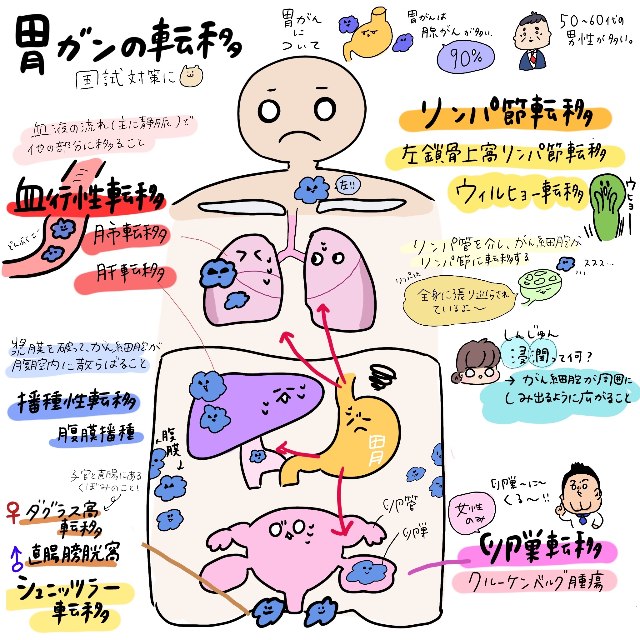 胃ガンの転移
国試対策に
胃がん
について
胃がんは
腺がんが多い。
90%
50〜60代の
男性が多い。
血液の流れ(主に静脈)で
他の部分に移ること
血行性転移
どんぶらこ
肺転移
肝転移
漿膜を破って、がん細胞が
腹腔内に散らばること
播種性転移
腹膜播種
腹膜
子宮と直腸にある
くぼみのこと!
♀ダグラス窩
転移
♂直腸膀胱窩
シュニッツラー
転移
左!!
胃
卵管
卵巣
リンパ節転移
左鎖骨上窩リンパ節転移
ウィルヒョー転移
ウヒョー
リンパ管を介し、がん細胞が
リンパ節に転移する
リンパは
全身に張り巡らされ
ているよ〜
ススス…
しんじゅん
浸潤って何?
→がん細胞が周囲に
しみ出るように広がること
卵巣〜に〜
くる〜!!
女性
のみ
卵巣転移
クルーケンベルグ腫瘍